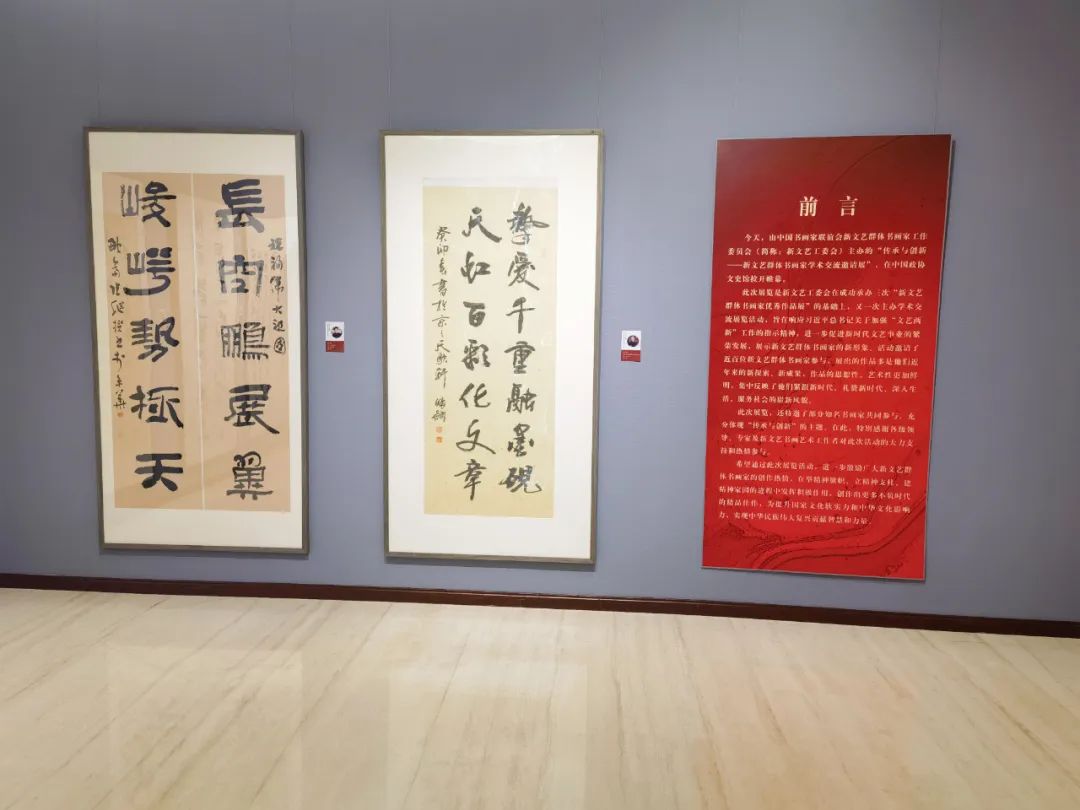 長 鵬展翼
峻 勢極天
摯愛千重融墨硯
天虹百彩化文章
癸卯春書於京
前言
今天，由中国书画家联谊会新文艺群体书画家工作
委员会（简称：新文艺工委会）主办的“传承与创新
——新文艺群体书画家学术交流邀请展”，在中国政协
文史馆拉开帷幕。
此次展览是新文艺工委会在成功承办三次“新文艺
群体书画家优秀作品展”的基础上，又一次主办学术交
流展览活动，旨在响应习近平总书记关于加强“文艺两
新”工作的指示精神，进一步促进新时代文艺事业的繁
荣发展，展示新文艺群体书画家的新形象。活动邀请了
近百位新文艺群体书画家参与，展出的作品多是他们近
年来的新探索、新成果，作品的思想性、艺术性更加鲜
明，集中反映了他们紧跟新时代、礼赞新时代、深入生
活、服务社会的崭新风貌。
此次展览，还特邀了部分知名书画家共同参与，充
分体现“传承与创新”的主题。在此，特别感谢各级领
导、专家及新文艺书画艺术工作者对此次活动的大力支
持和热情参与。
希望通过此次展览活动，进一步激励广大新文艺群
体书画家的创作热情，在举精神旗帜、立精神支柱、建
精神家园的进程中发挥积极作用，创作出更多不负时代
的精品佳作，为提升国家文化软实力和中华文化影响
力、实现中华民族伟大复兴贡献智慧和力量。